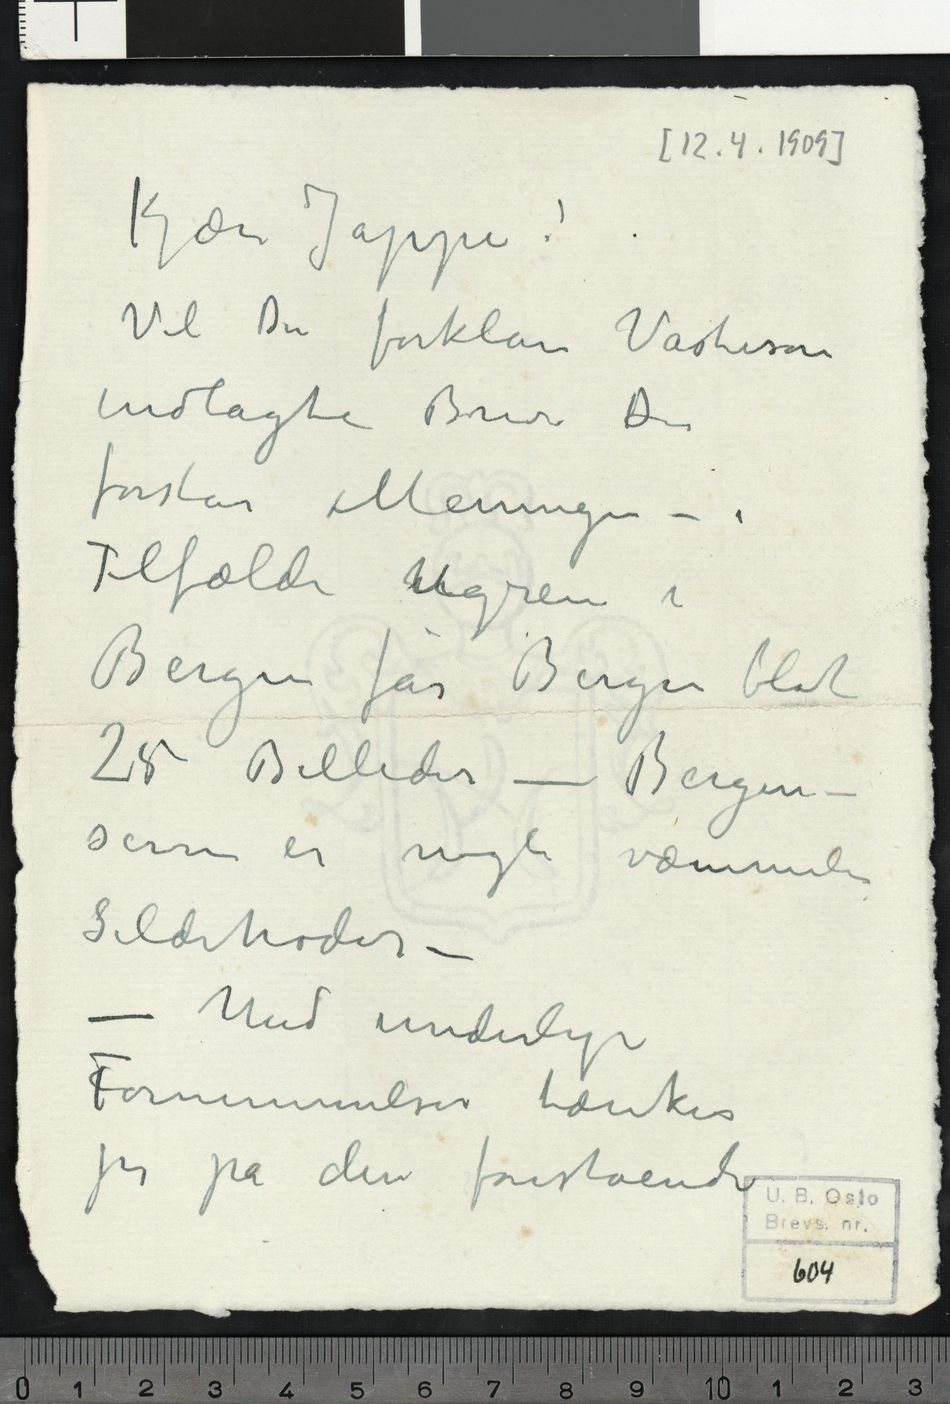 [12.4.1909]
Kjære Jappe!
Vil Du forklare
indlagte Brev Du
forstår Meningen – i
Tilfælde Ugreie i
Bergen får Bergen blot
25 Billeder — Bergen–
serne er nogle væmmelige
Sildehoder –
— Med underlige
Fornemmelser tænker
jeg på den forestående
U. B. Oslo
Brevs. nr.
604
0 1 2 3 4 5 6 7 8 9 10 1 2 3